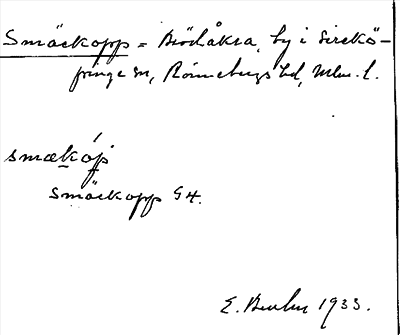 Smäckopp = Brödåkra, by i Sireko-
pinge sn, Rönnebergs hd, Mlm. l.
smækóp
Smäckopp GH.
E. 1933.